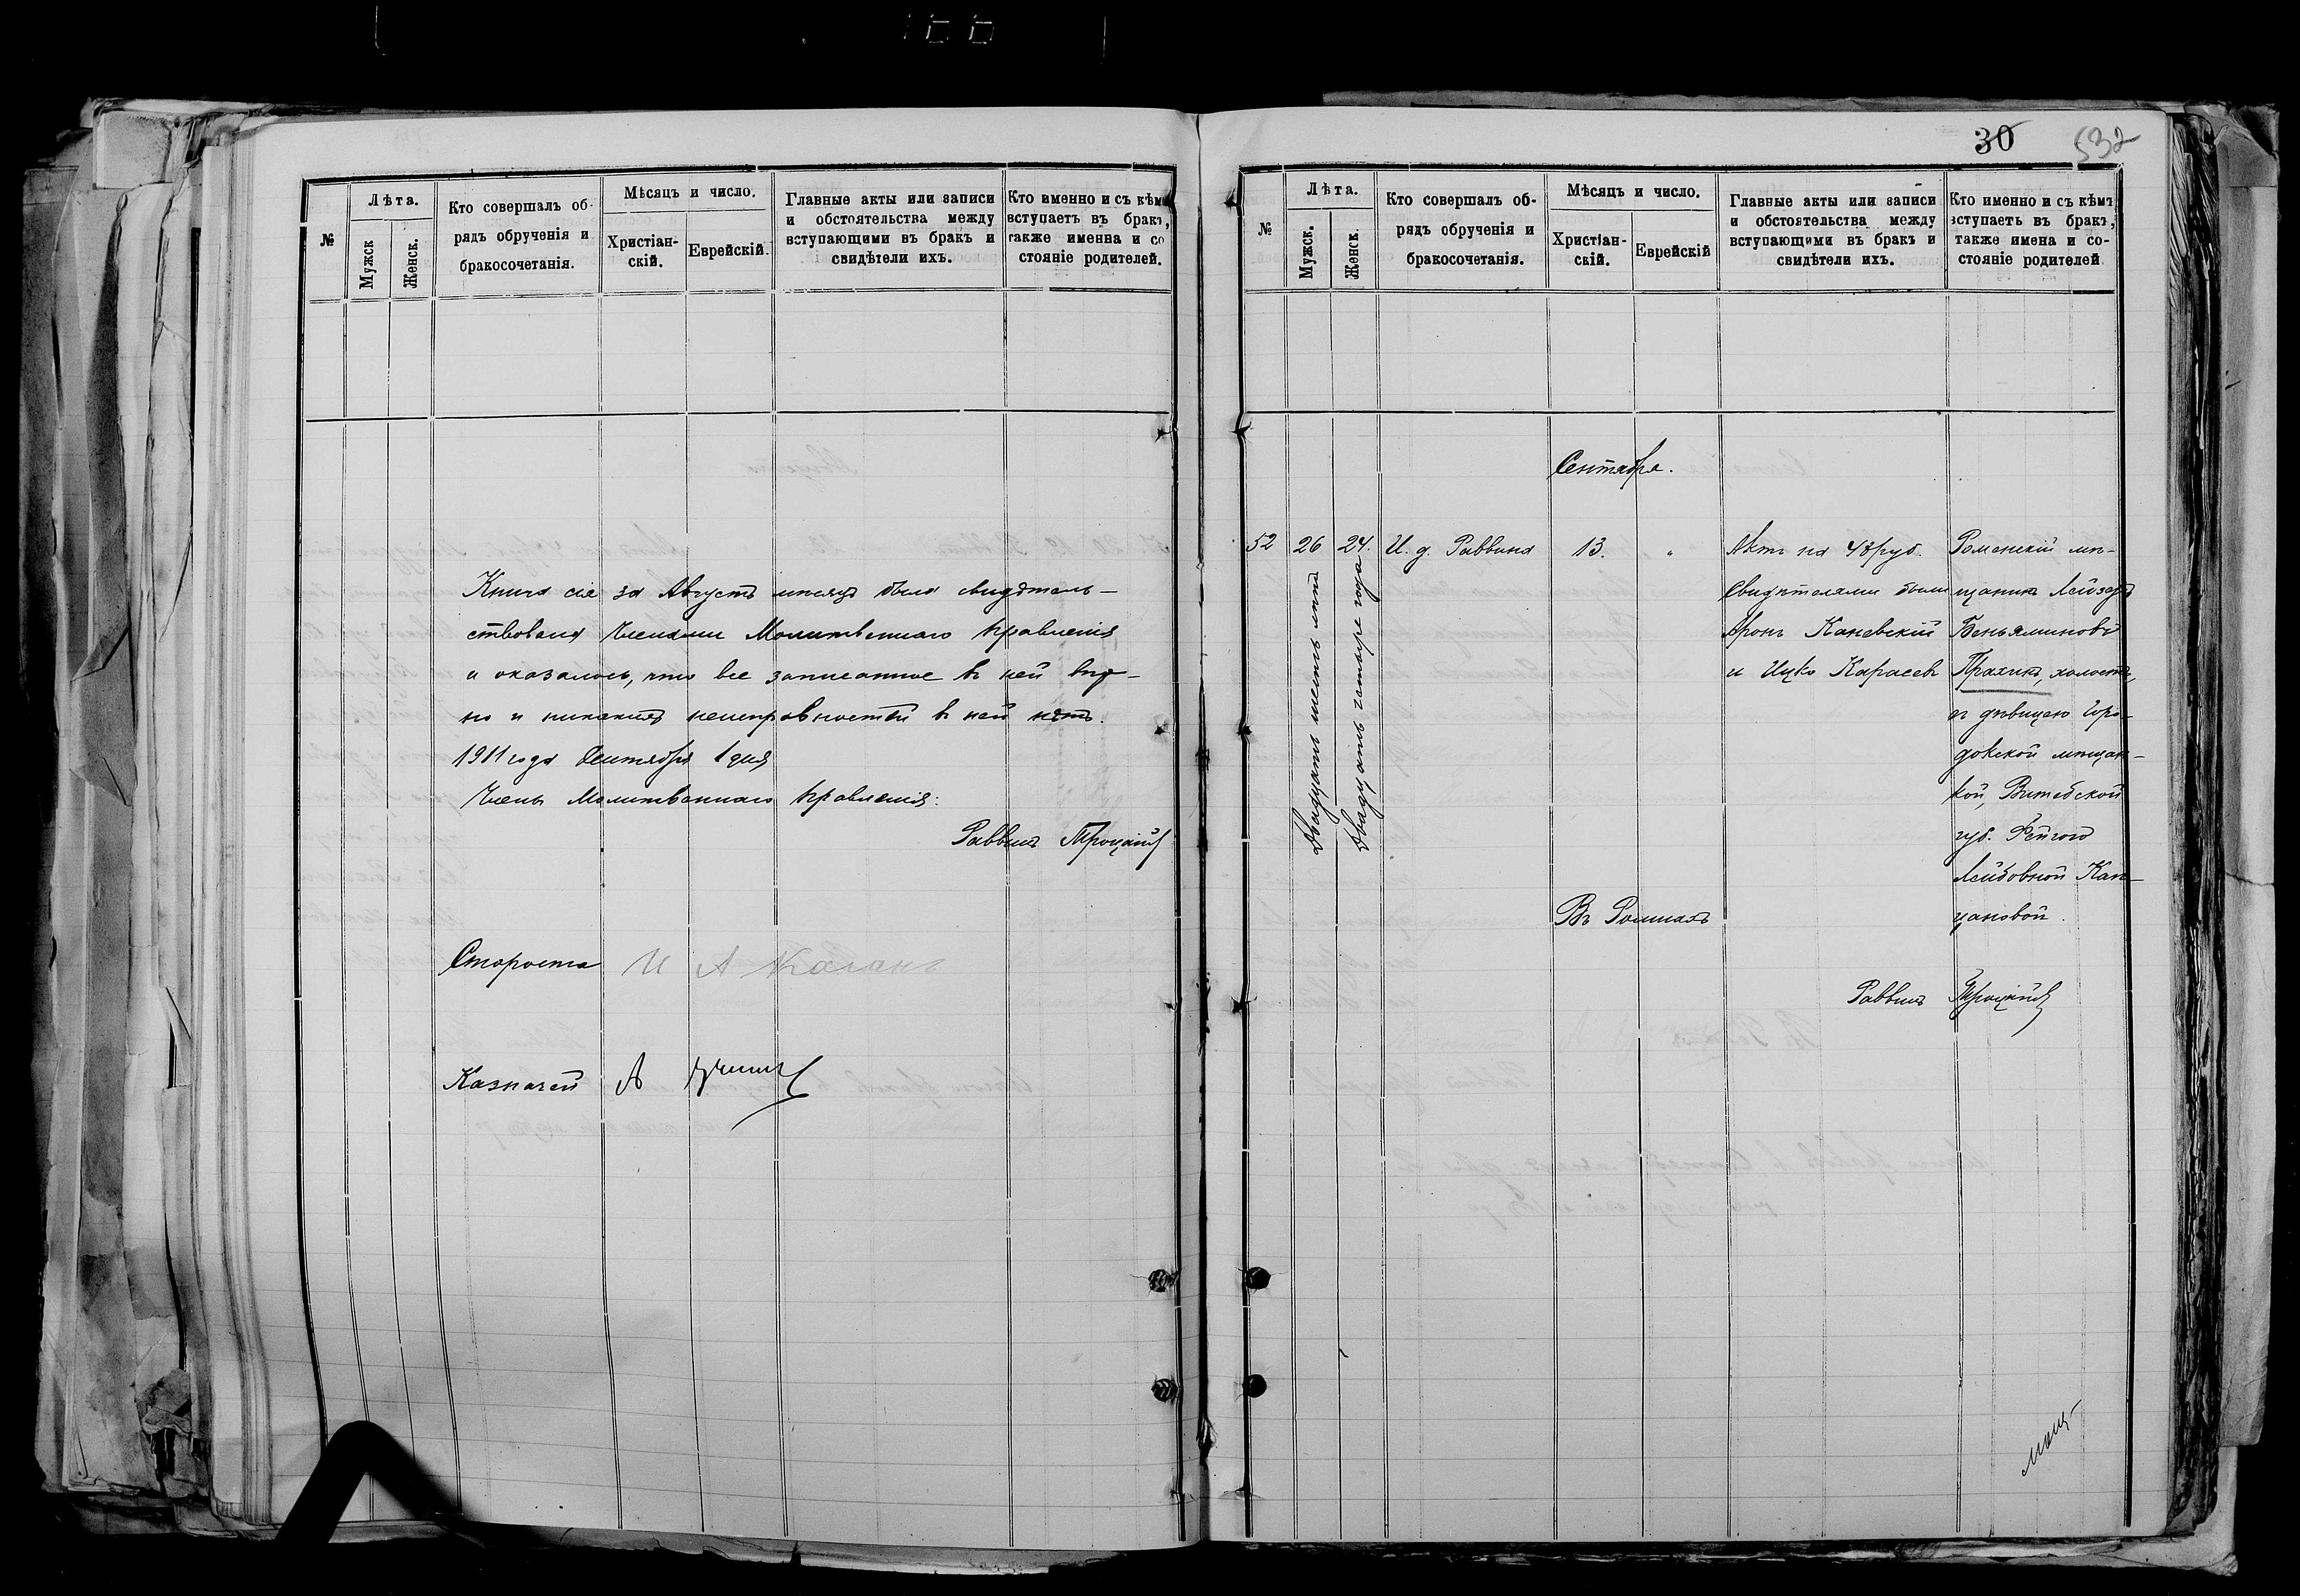 №
Лѣта.
Мужск
Женск.
Кто совершалъ об-
рядъ обрученія и
бракосочетанія.
Мѣсяцъ и число.
Христіан-
скій.
Еврейскій.
Главные акты или записи
и обстоятельства между
вступающими въ бракъ и
свидѣтели ихъ.
Кто именно и съ кѣмъ
вступаетъ въ бракъ,
также именна и со
стояніе родителей.
Книга сія за Августъ мѣсяцъ была свидѣтель-
ствована Членами Молитвеннаго правленія
и оказалось, что все записанное въ ней вѣр-
но и никакихъ неисправностей въ ней нѣтъ.
1911 года Сентября 1 дня
Члены Молитвеннаго правленія:
Раввинъ Троцкій
Староста И А Каганъ
Казначей А
30 532
№
Лѣта.
Мужск.
Женск.
Кто совершалъ об-
рядъ обрученія и
бракосочетанія.
Мѣсяцъ и число.
Христіан-
скій.
Еврейскій
Главные акты или записи
и обстоятельства между
вступающими въ бракъ и
свидѣтели ихъ.
Кто именно и съ кѣмъ
вступаетъ въ бракъ,
также имена и со-
стояніе родителей
Сентября.
52
26
Двадцать шесть лѣтъ
24.
Двадцать четыре года
И. д. Раввина
13.
"
Въ Ромнахъ
Актъ на 48 руб.
Свидѣтелями были
Аронъ Каневскій
и Ицко Карасевъ
Роменскій мѣ-
щанинъ Лейзеръ
Беньяминовъ
Прахинъ, холостъ,
съ дѣвицею Горо-
докской мѣщан-
кой, Витебской
губ. Рейзою
Лейбовной Кан-
цановой.
Раввинъ Троцкій